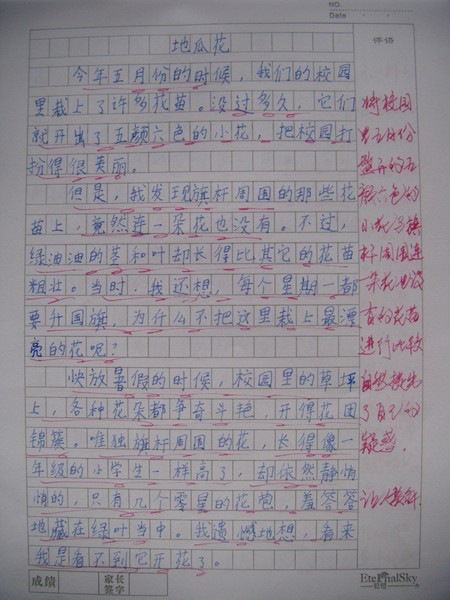 NO.
Date
评语
地瓜花
今年五月份的时候，我们的校园
里栽上了许多花苗。没过多久，它们
就开出了五颜六色的小花，把校园打
扮得很美丽。
但是，我发现旗杆周围的那些花
苗上，竟然连一朵花也没有。不过，
绿油油的茎和叶却长得比其它的花苗
粗壮。当时，我还想，每个星期一都
要升国旗，为什么不把这里栽上最漂
亮的花呢？
快放暑假的时候，校园里的草坪
上，各种花朵都争奇斗艳，开得花团
锦簇。唯独旗杆周围的花，长得像一
年级的小学生一样高了，却依然静悄
悄的，只有几个零星的花苞，羞答答
地藏在绿叶当中。我遗憾地想，看来
我是看不到它开花了。
将校园
里五月份
盛开的五
颜六色的
小花与旗
杆周围连
一朵花也没
有的花苗
进行比较
自然提出
了自己的
疑惑。
成绩
家长
签字
EternalSky